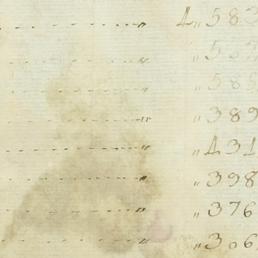 " 4 " 583
" " 5
" " 585
" " 389
" " 431
" " 398
" " 376
" " 306